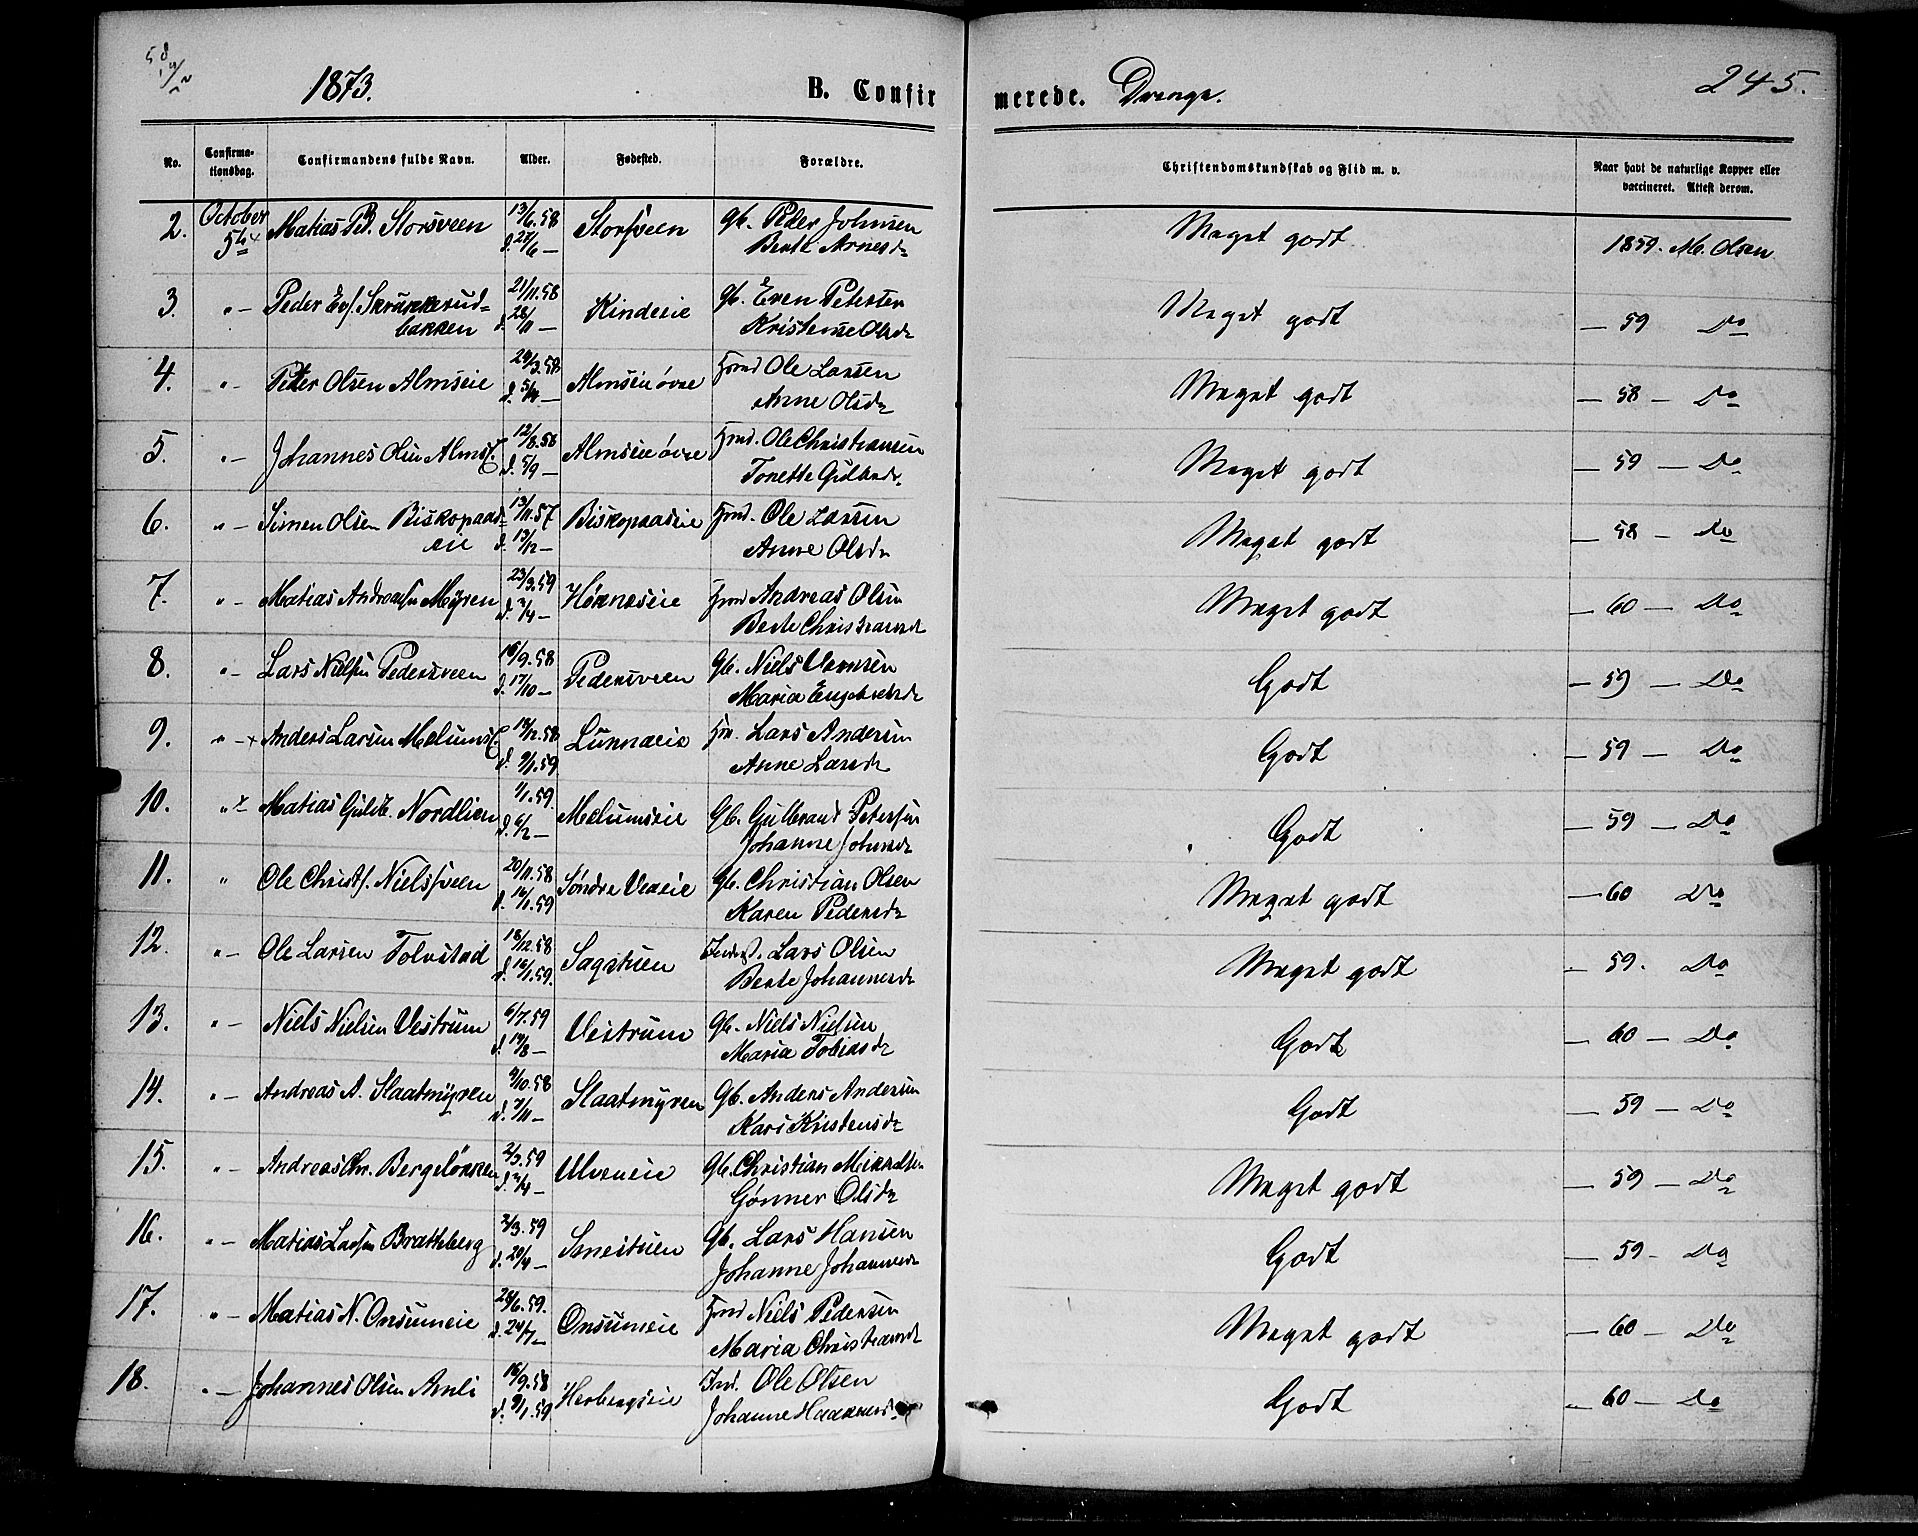 1873. B. Confirmerede. Drenge. 245.
No. Confirmationsdag. Confirmandens fulde Navn. Alder. Fødested. Forældre. Christendomskundskab og Flid m. v. Naar havt de naturlige Kopper eller vaccineret. Attest derom.
2. October 5te Matias P. Storsveen 13/6.58 Storsveen Gb. Peder Johnsen Meget godt 1859. M. Olsen
d. 27/6 — Berthe Arnesdr
3. " — Peder Ev. Skrankerud- 21/11.58 Kindseie Gb. Even Petersen Meget godt — 59 Do
bakken d. 28/11 — Kristense Olsdr
4. " — Peter Olsen Almseie 29/3.58 Almseie øvre Hmd Ole Larsen Meget godt — 58 — Do
d. 5/4 — Anne Olsdr
5. " — Johannes Olsen Alms. 12/8.58 Almseie øvre Hmd. Ole Christiansen Meget godt — 59 — Do
d. 5/9 — Tonette Gulbrdr.
6. " — Simen Olsen Biskopaas- 13/11.57 Biskopaaseie Hmd. Ole Larsen Meget godt — 58 — Do
eie d. 13/12 — Anne Olsdr
7. " — Matias Andreassen Myren 23/3.59 Hørneseie Hmd Andreas Olsen Meget godt — 60 — Do
d. /4 — Berte Christiansdr
8. " — Lars Nielsen Pedersveen 16/9.58 Pedersveen Gb. Niels Godt — 59 — Do
d. 17/10 — Maria Engebretsdr
9. " — Anders Larsen Melums. 18/12.58 Lunnaeie Hm. Lars Andersen Godt — 59 — Do
d. 9/1.59 Anne Larsdr
10. " Matias Gulb. Nordlien 1/1.59. Melumseie Gb. Gulbrand Petersen Godt — 59 — Do
d. 6/2 — Johanne Johnsdr
11. " Ole Christ. Nielssveen 20/11.58 Søndre Veneie Gb. Christian Olsen Meget godt — 60 Do
d. 16/1.59 Karen Pedersdr
12. " — Ole Larsen Tolvstad 18/12.58 Sagstuen Inderst. Lars Olsen Meget godt — 59. Do
d. 16/1.59. Berte Johannesdr
13. " — Niels Nielsen Vestrum 6/7.59 Vestrum Gb. Niels Nielsen Godt — 60 — Do
d. 14/8 — Maria Tobiasdr
14. " — Andreas A. Slaatmyren 9/10.58 Slaatmyren Gb. Anders Andersen Godt — 59 — Do
d. 7/11 — Kari Kristensdr
15. " — Andreas Chr. Bergeløkken 2/3.59 Ulveneie Gb. Christian Mikkelsen Meget godt — 59 — Do
d. /4 — Gønner Olsdr
16. " — Matias Larsen Bratteberg 2/3.59 Smestuen Gb. Lars Hansen Godt — 59 — Do
d. 20/4 — Johanne Johannesdr
17. " — Matias N. Onsumeie 28/6.59. Onsumeie Hmd Niels Pedersen Meget godt — 60 — Do
d. 24/7 — Maria Christiansdr
18. " — Johannes Olsen Amli 16/9.58 Herbergseie Ind. Ole Olsen Godt — 60 — Do
d. 9/1.59 Johanne Haakensdr